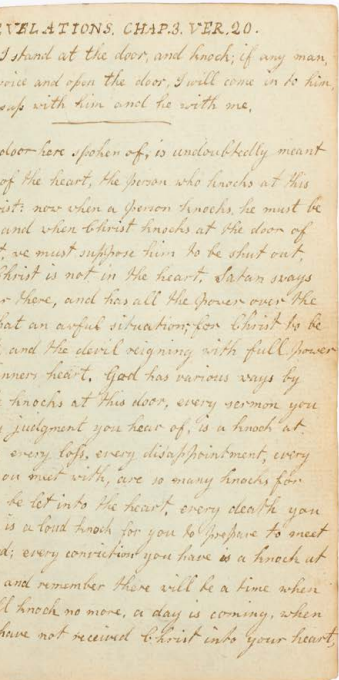 EVELATIONS. CHAP.3. VER. 20.
I stand at the door, and knock; if any man,
voice and open the door, I will come in to him,
sup with him and he with me.
door here spoken of, is undoubtedly meant
of the heart, the person who knocks at this
rist: now when a person knocks, he must be
and when Christ knocks at the door of
t, we must suppose him to be shut out,
Christ is not in the heart, Satan sways
r there, and has all the power over the
hat an awful situation; for Christ to be
, and the devil reigning with full power
nners heart. God has various ways by
knocks at this door, every sermon you
judgment you hear of, is a knock at
every loss, every disappointment, every
ou meet with, are so many knocks for
be let into the heart, every death you
is a loud knock for you to prepare to meet
d; every conviction you have is a knock at
and remember there will be a time when
ll knock no more, a day is coming, when
have not received Christ into your heart,